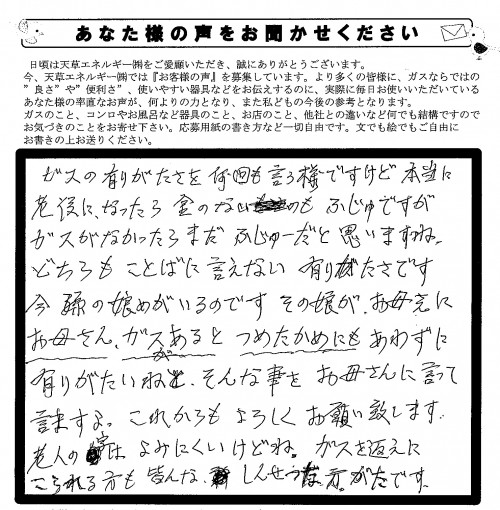 あなた様の声をお聞かせください
日頃は天草エネルギー㈱をご愛顧いただき、誠にありがとうございます。
今、天草エネルギー㈱では『お客様の声』を募集しています。より多くの皆様に、ガスならではの
”良さ”や”便利さ”、使いやすい器具などをお伝えするのに、実際に毎日お使いいただいている
あなた様の率直なお声が、何よりの力となり、また私どもの今後の参考となります。
ガスのこと、コンロやお風呂など器具のこと、お店のこと、他社との違いなど何でも結構ですので
お気づきのことをお寄せ下さい。応募用紙の書き方など一切自由です。文でも絵でもご自由に
お書きの上お送りください。
ガスの有りがたさを何回も言う様ですけど本当に
老後になったら金のないのも ふじゆですが
ガスがなかったらまだ ふじゆーだと思いますね。
どちらも ことばに言えない 有りがたさです
今 の娘めがいるのです その娘が、お母さんに
お母さん、ガスがあると つめたかめにも あわずに
有りがたいねと、そんな事を お母さんに言って
ますよ。これからも よろしく お願い致します。
老人の 字は よみにくいけどね。 ガスを返えに
こられる方も 皆んな、しんせつな 方がたです。